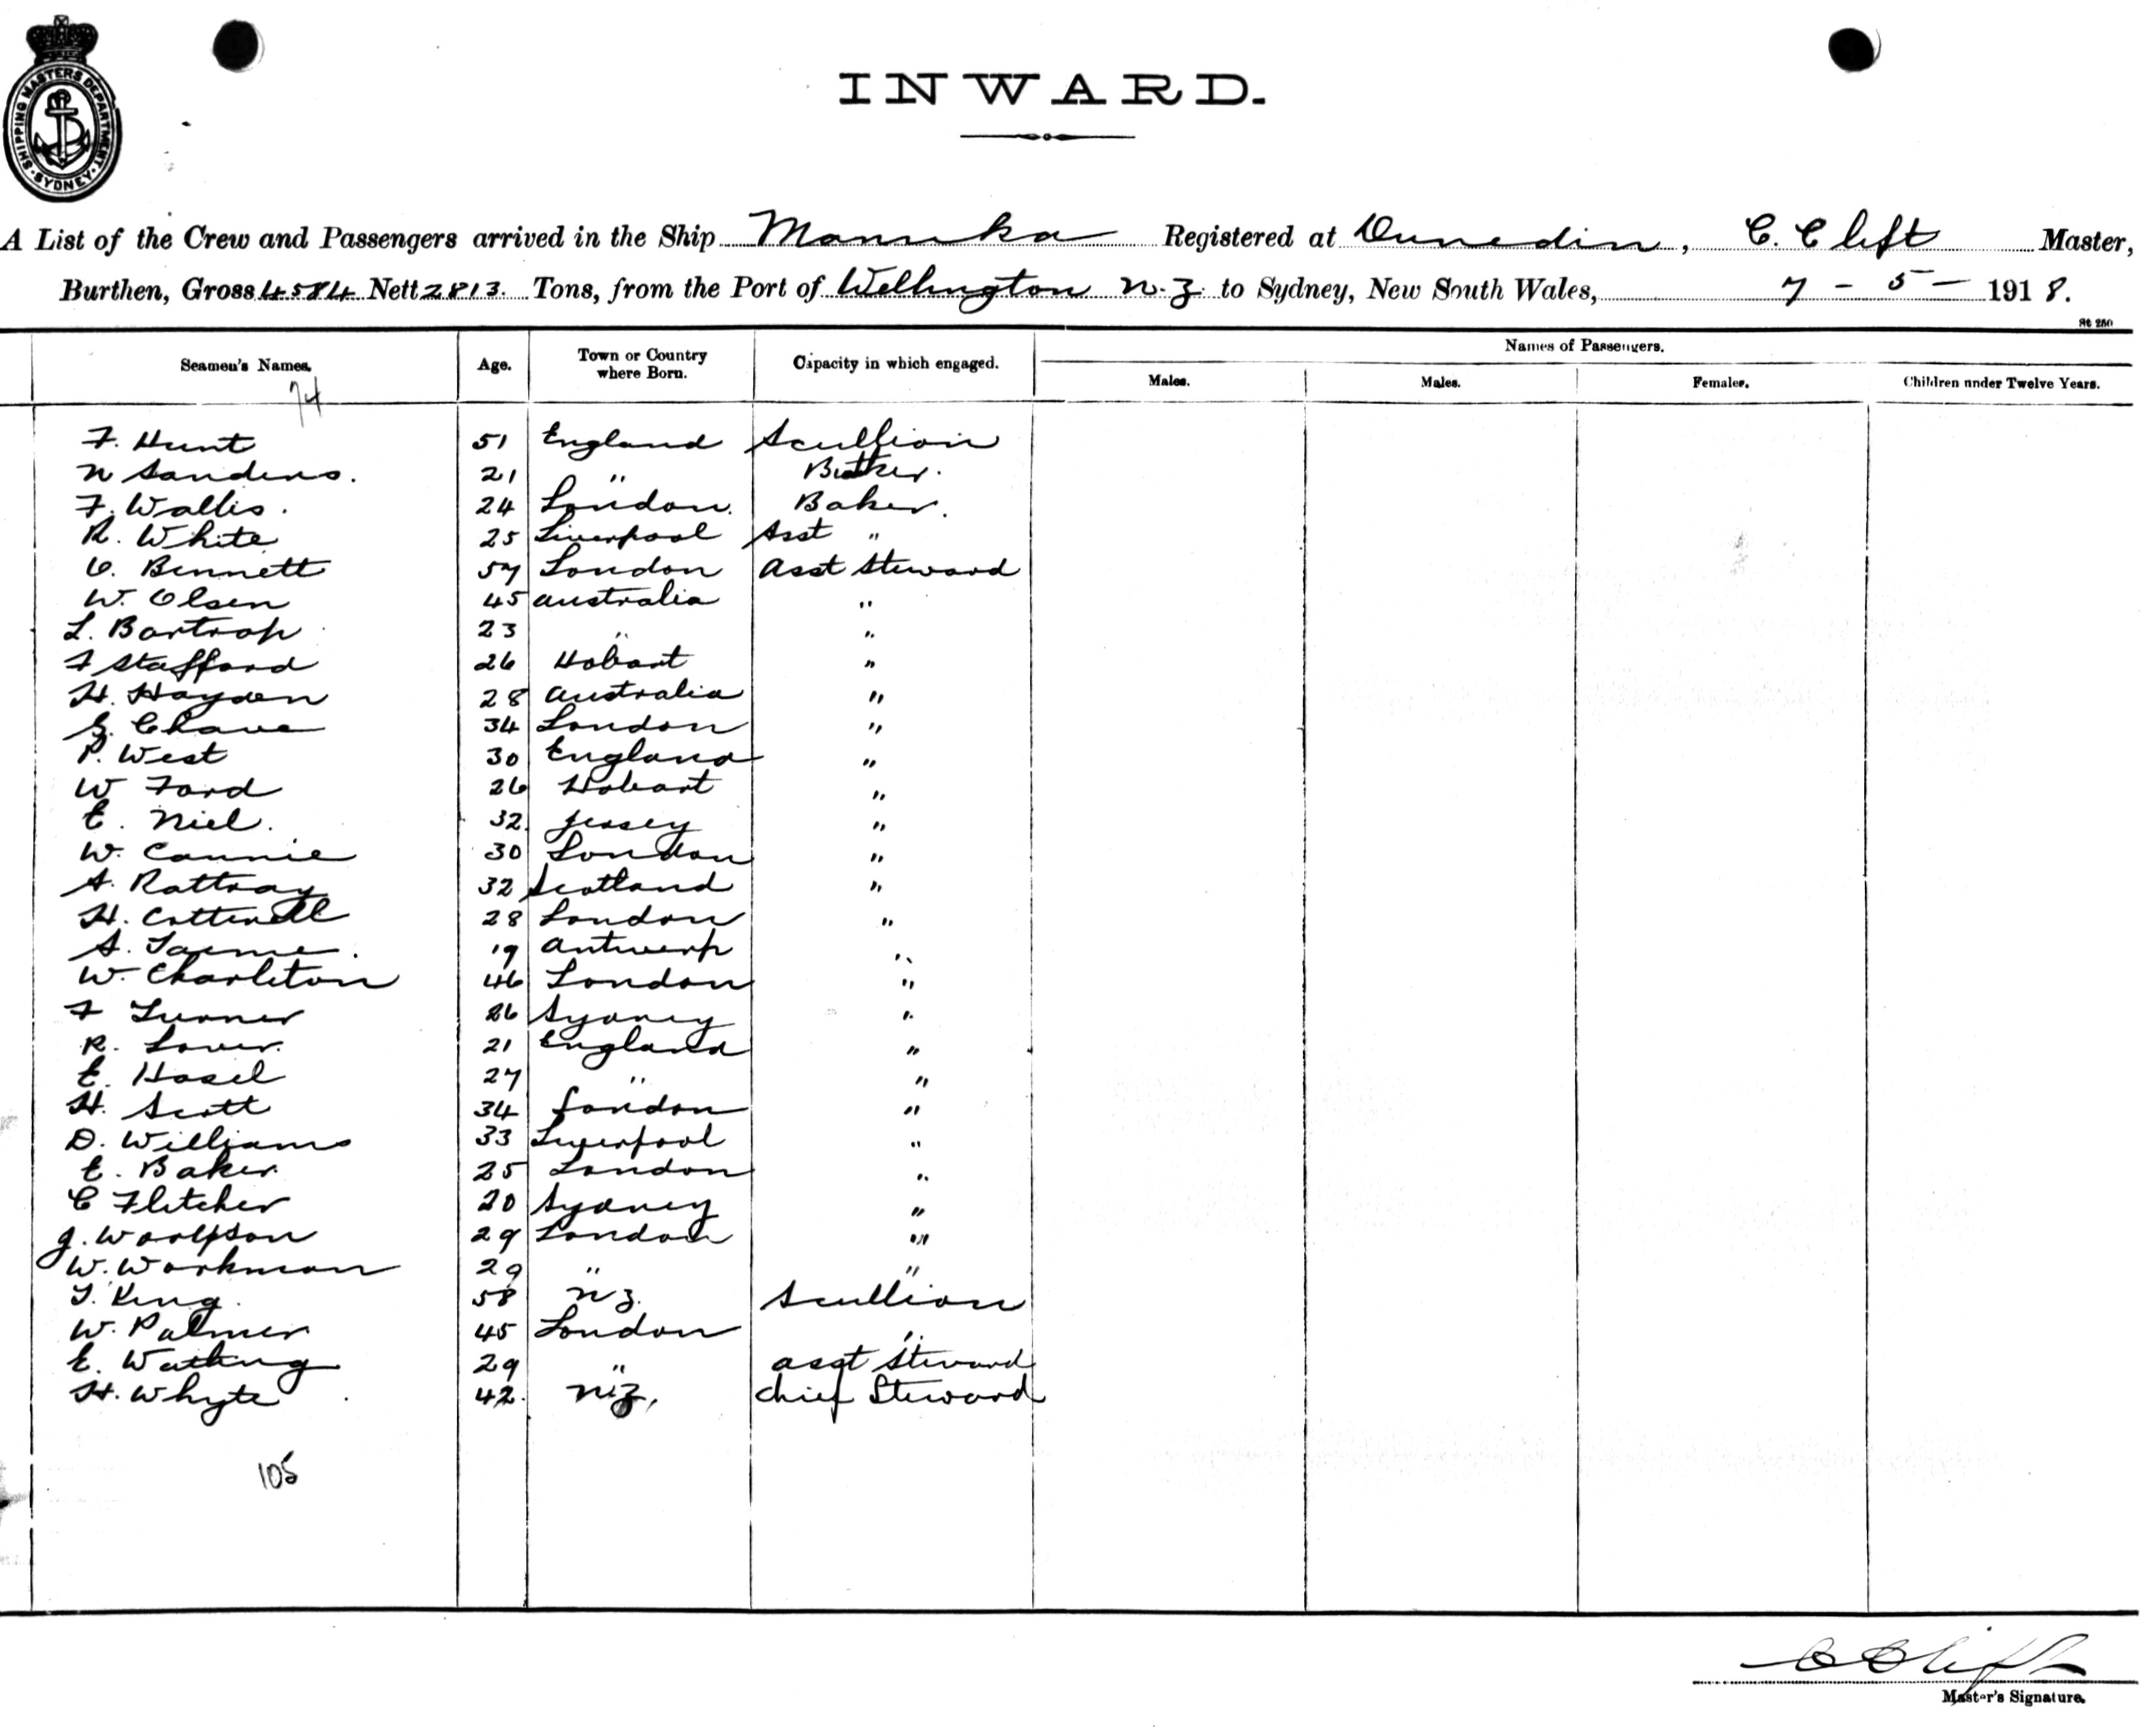 SHIPPING MASTERS DEPARTMENT · SYDNEY ·
INWARD.
A List of the Crew and Passengers arrived in the Ship Manuka Registered at Dunedin, C. Clift Master,
Burthen, Gross 4584 Nett 2813. Tons, from the Port of Wellington N.Z to Sydney, New South Wales, 7 - 5 - 1918.
Names of Passengers.
Seamen's Names. Age. Town or Country where Born. Capacity in which engaged. Males. Males. Females. Children under Twelve Years.
74
F. Hunt 51 England Scullion
N Sanders. 21 " Butcher.
F. Wallis. 24 London. Baker.
R. White 25 Liverpool Asst "
Bennett 57 London Asst Steward
W. Olsen 45 Australia "
L. Bartrop 23 " "
F Stafford 26 Hobart "
H. Hayden 28 Australia "
Chave 34 London "
P. West 30 England "
W Ford 26 Hobart "
E. Niel. 32. Jersey "
W. Cannie 30 London "
A. Rattray 32 Scotland "
H. Cotterell 28 London "
A. 19 Antwerp "
W. Charleton 46 London "
F Turner 26 Sydney "
R. Lower. 21 England "
E. Hasel 27 " "
H. Scott 34 London "
D. Williams 33 Liverpool "
E. Baker. 25 London "
C Fletcher 20 Sydney "
J. Woolfson 29 London "
W. Workman 29 " "
T. King. 58 NZ. Scullion
W. Palmer 45 London "
E. Watling 29 " Asst Steward
H. Whyte 42. NZ. Chief Steward
105
C Clift
Master's Signature.